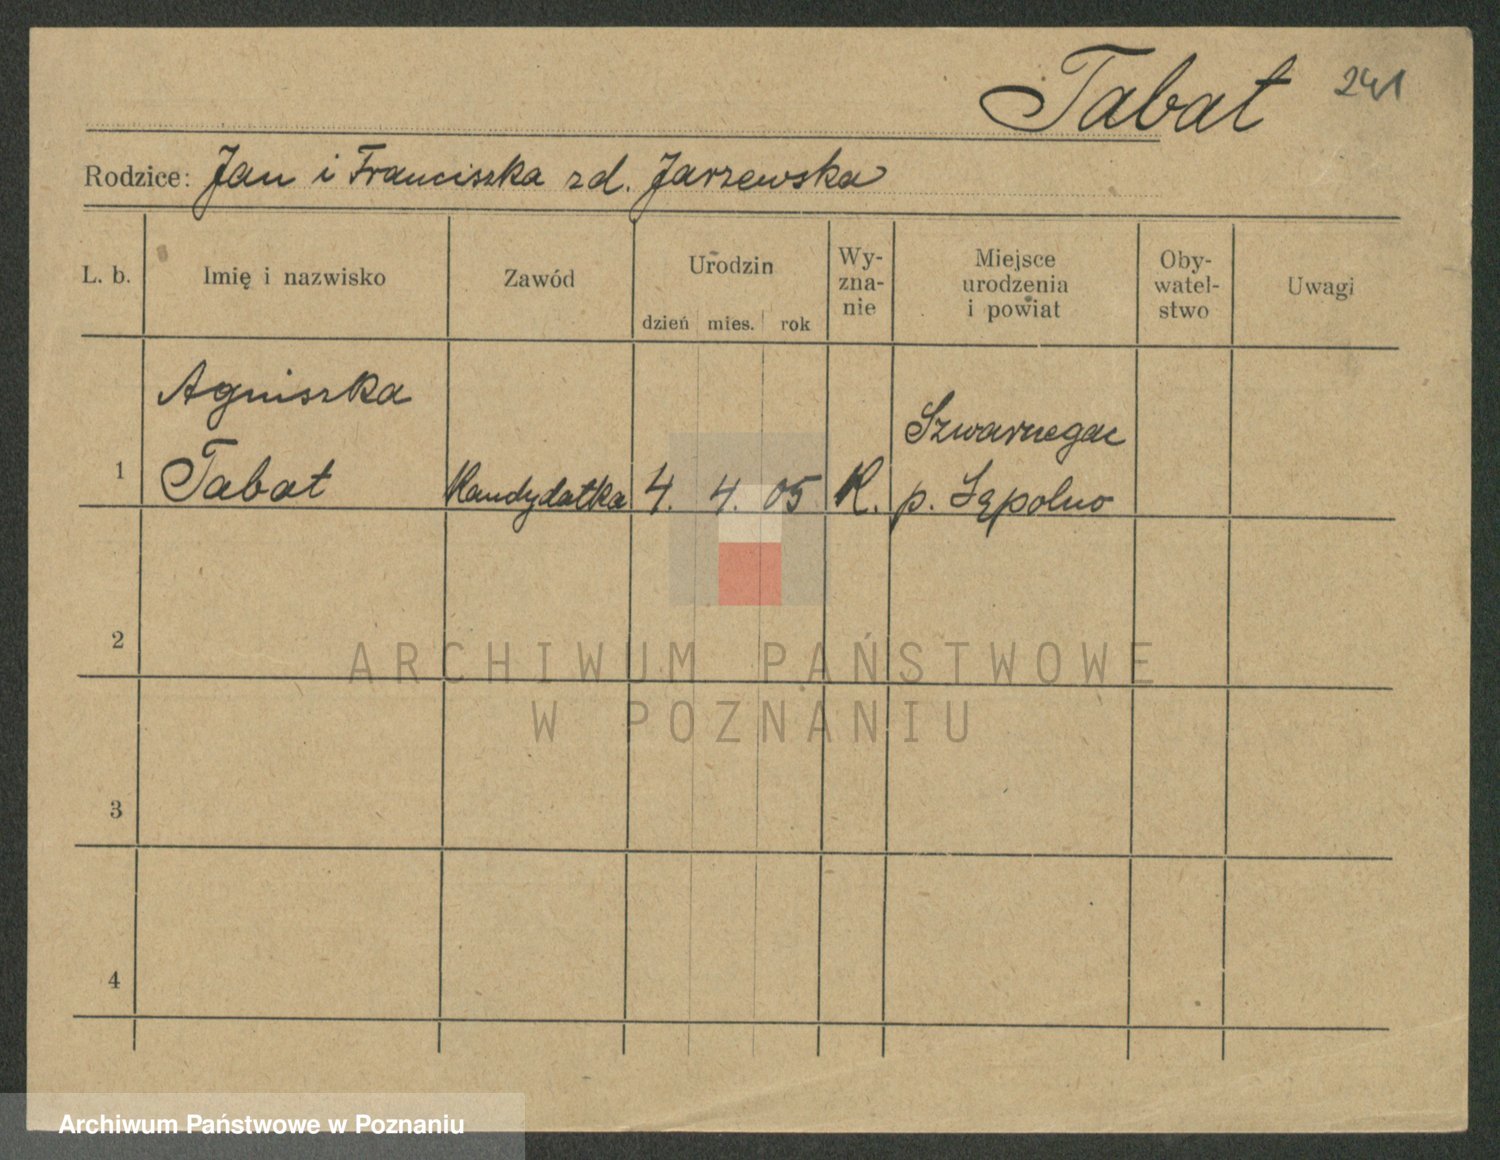 Tabat 241
Rodzice: Jan i Franciszka zd. Jarzewska
L. b. Imię i nazwisko Zawód Urodzin dzień mies. rok Wy-zna-nie Miejsce urodzenia i powiat Oby-watel-stwo Uwagi
Agniszka
Szwarnegac
1 Tabat Kandydatka 4. 4. 05 K. p. Sępolno
2
ARCHIWUM PAŃSTWOWE
W POZNANIU
3
4
Archiwum Państwowe w Poznaniu